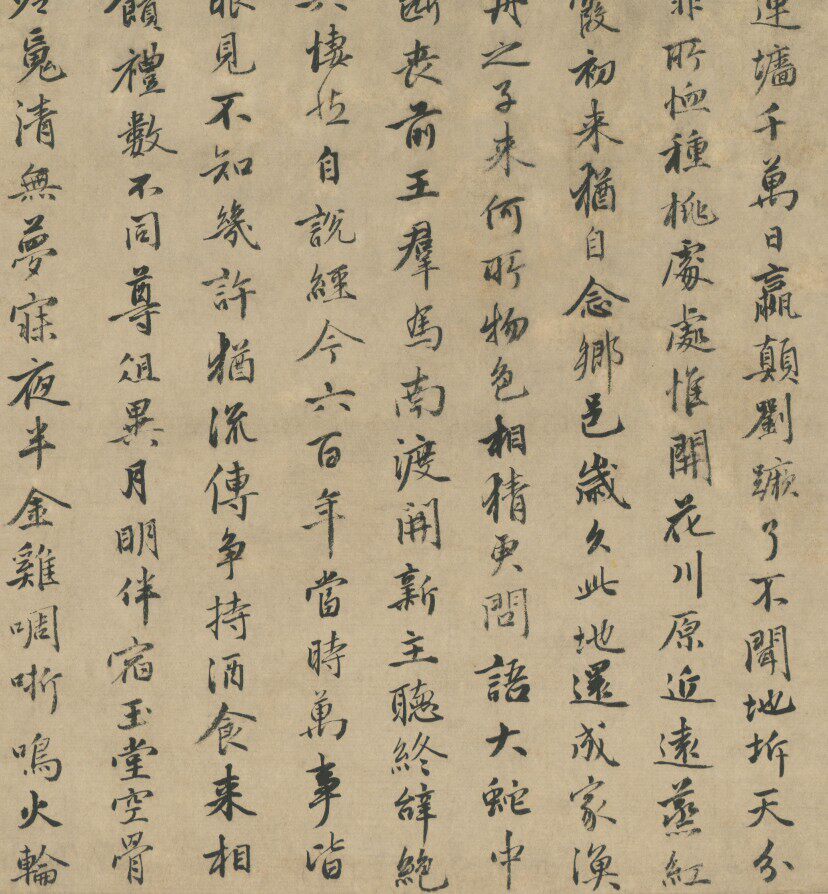 連墻千萬日嬴顛劉蹶了不聞地坼天分
非所恤種桃處處惟開花川原近遠蒸紅
霞初来猶自念鄉邑歲久此地還成家漁
舟之子来何所物色相猜更問語大蛇中
斷喪前王羣馬南渡開新主聽終辭絕
共悽然自說經今六百年當時萬事皆
眼見不知幾許猶流傳爭持酒食来相
饋禮數不同尊俎異月明伴宿玉堂空骨
冷魂清無夢寐夜半金雞啁哳鳴火輪